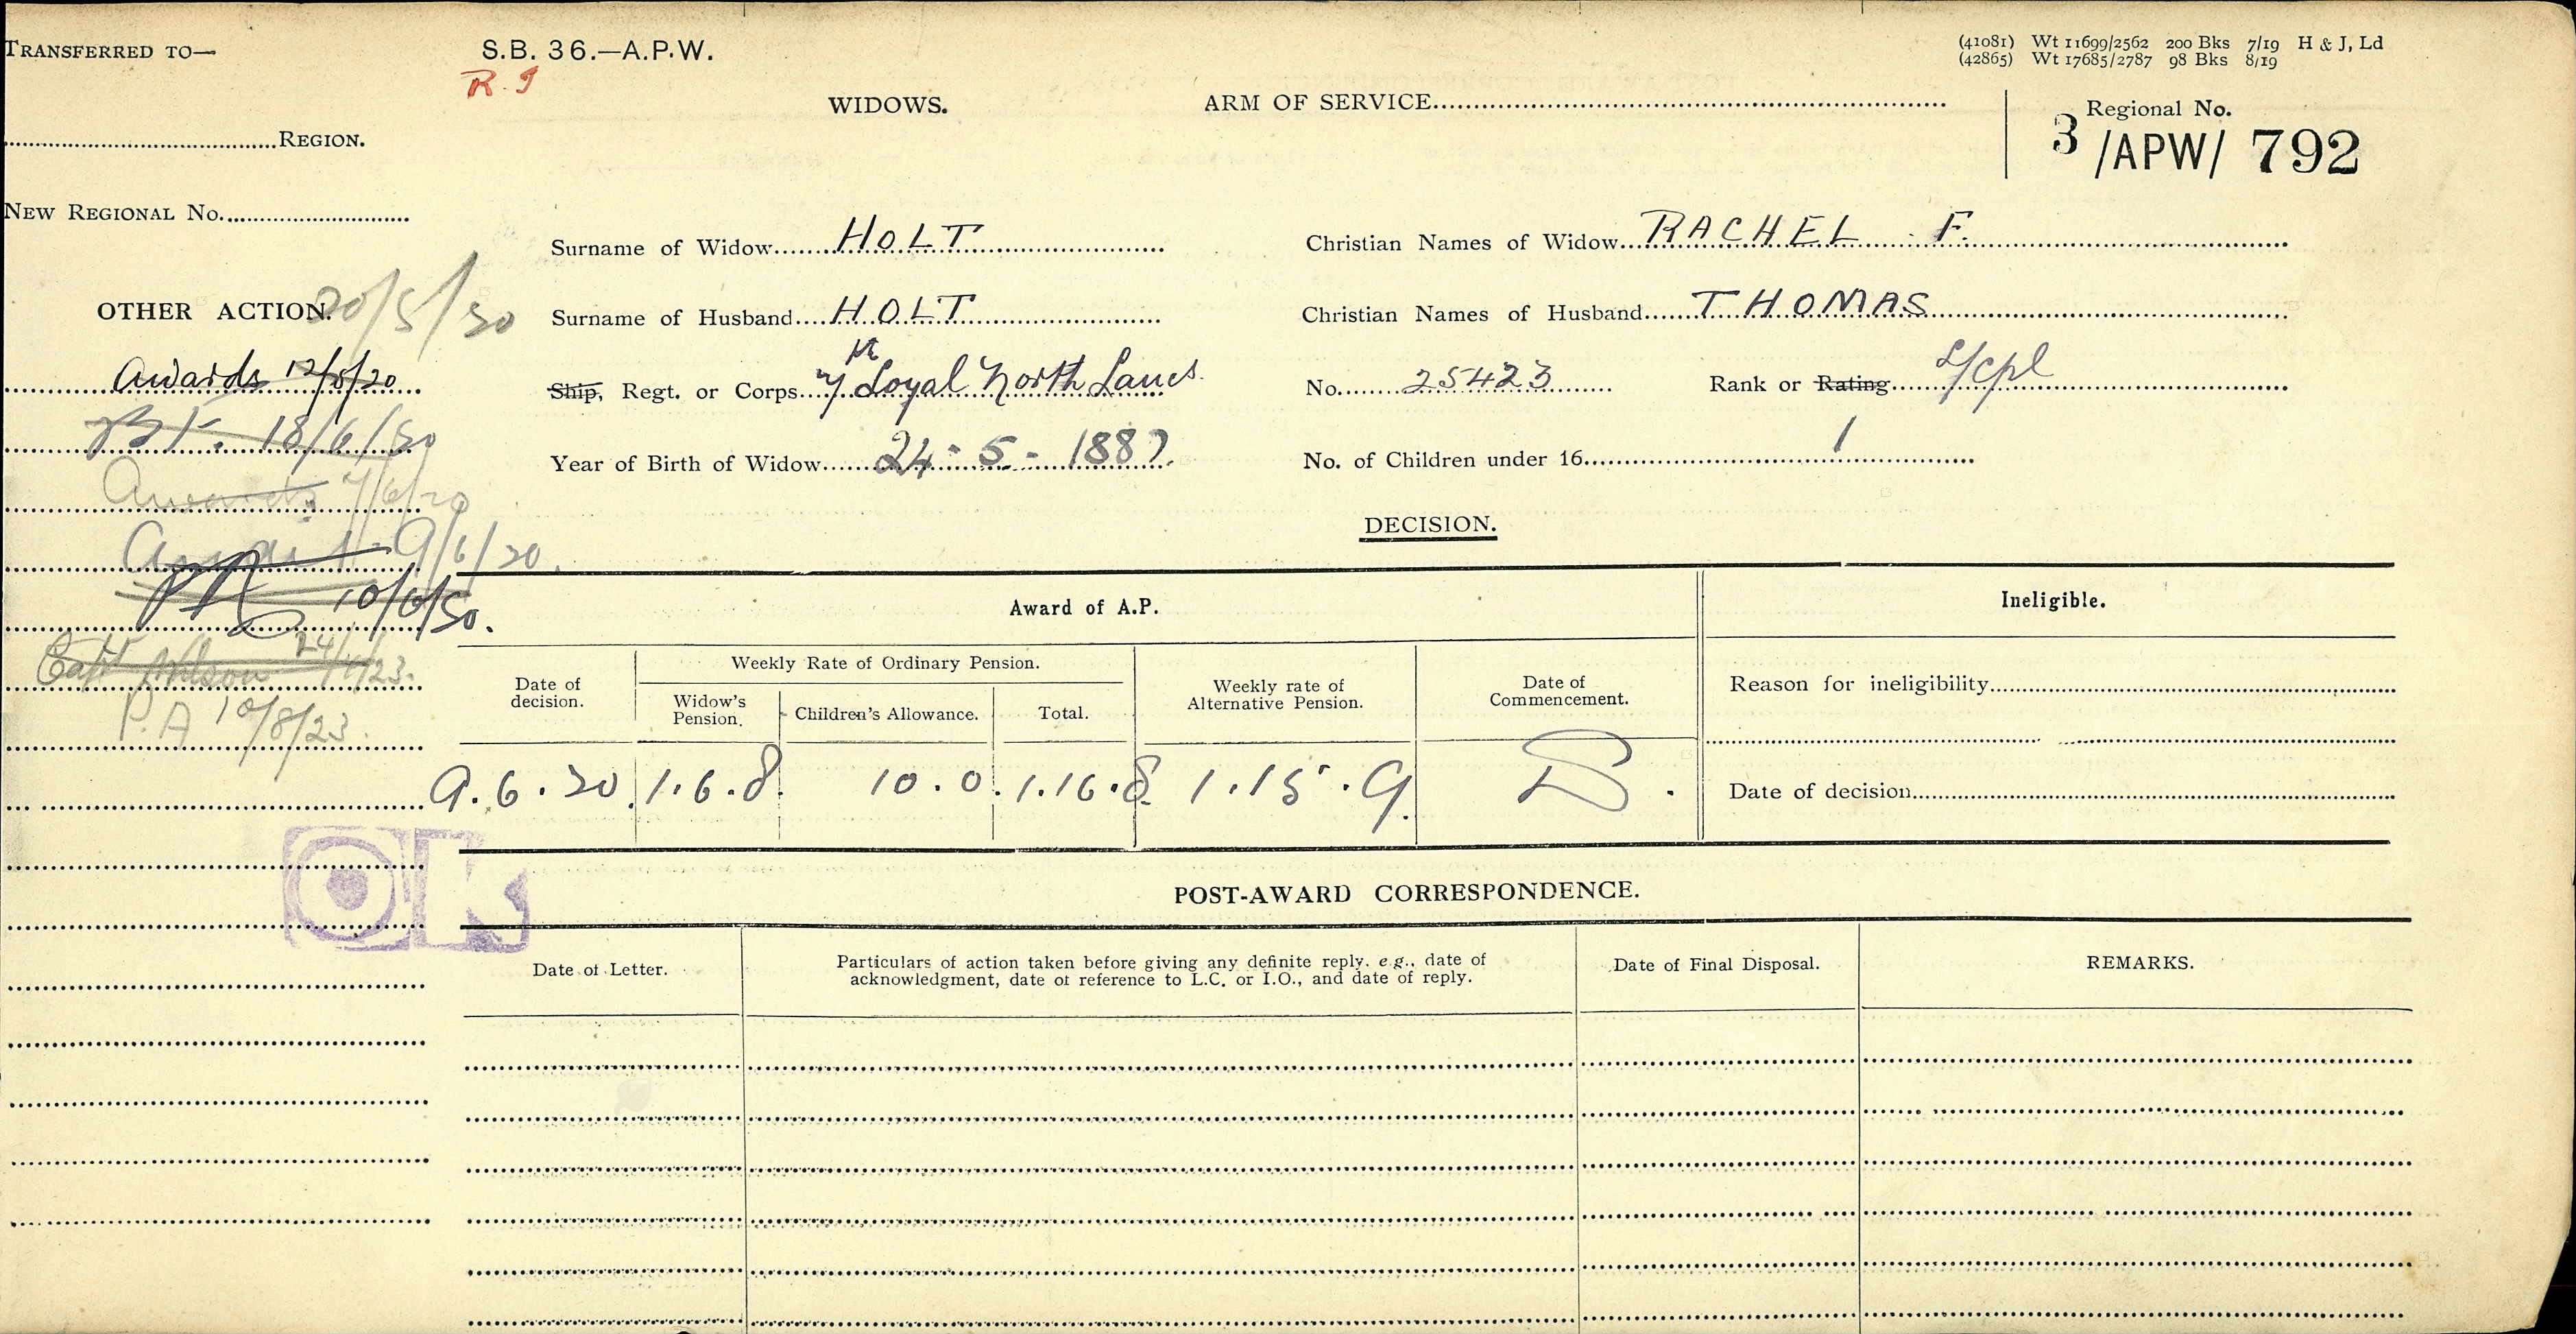 TRANSFERRED TO—
S.B. 36.—A.P.W.
(41081) Wt 11699/2562 200 Bks 7/19 H & J, Ld
(42865) Wt 17685/2787 98 Bks 8/19
WIDOWS.
ARM OF SERVICE
Regional No.
3 /APW/ 792
REGION.
NEW REGIONAL No.
Surname of Widow HOLT
Christian Names of Widow RACHEL F.
OTHER ACTION.
Surname of Husband HOLT
Christian Names of Husband THOMAS
Awards 12/5/20
Ship, Regt. or Corps 7th Loyal North Lancs.
No. 25423 Rank or Rating L/Cpl
18/6/20
Year of Birth of Widow 24-5-1887.
No. of Children under 16 1
Awards 7/6/20
9/6/20
DECISION.
Award of A.P.
Ineligible.
10/6/20.
Weekly Rate of Ordinary Pension.
Date of decision.
Widow's Pension.
Children's Allowance.
Total.
Weekly rate of Alternative Pension.
Date of Commencement.
Reason for ineligibility
P.A 10/8/23.
9.6.20. 1.6.8. 10.0. 1.16.8. 1.15.9.
Date of decision
OK
POST-AWARD CORRESPONDENCE.
Date of Letter.
Particulars of action taken before giving any definite reply. e.g., date of
acknowledgment, date of reference to L.C. or I.O., and date of reply.
Date of Final Disposal.
REMARKS.